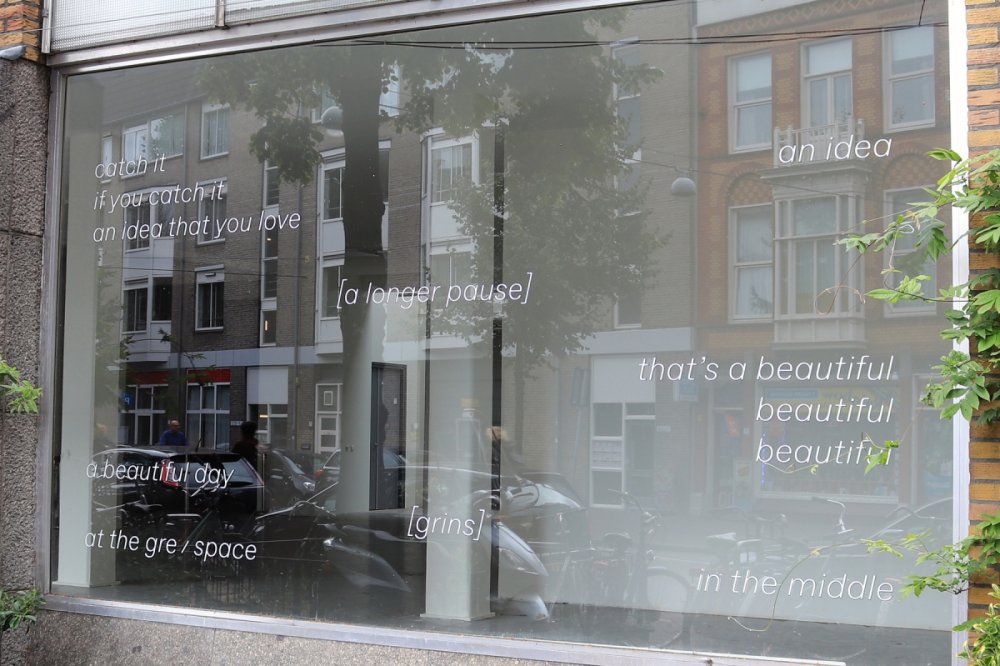 catch it
if you catch it
an idea that you love
an idea
[a longer pause]
that's a beautiful
beautiful
beautiful
a beautiful day
at the gre / space
[grins]
in the middle